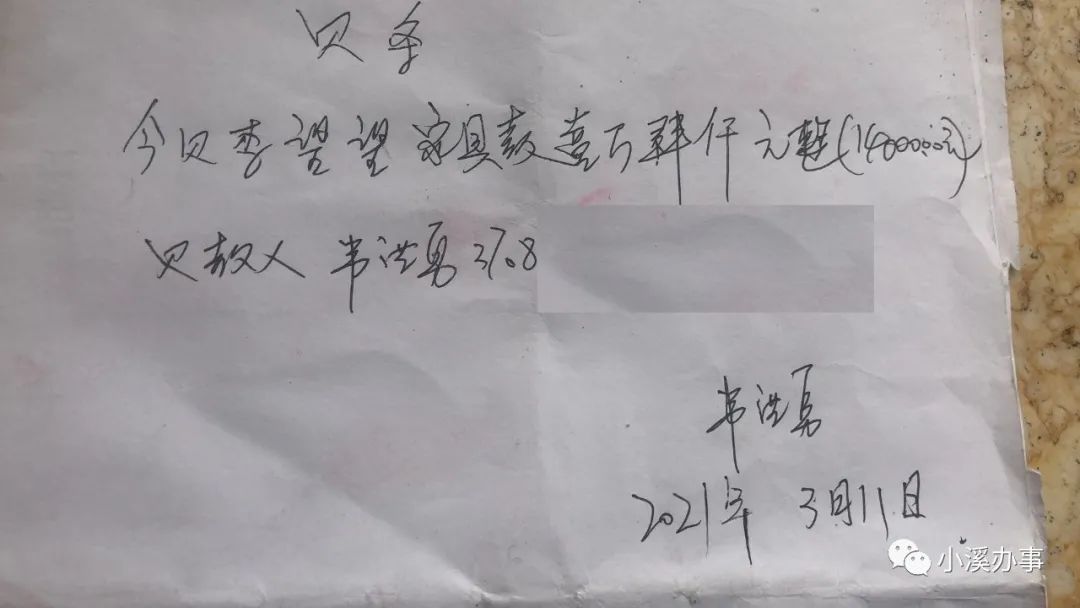 欠条
今欠李望望家具款壹万肆仟元整(14000.00元)
欠款人 韦洪勇 3708
韦洪勇
2021年 3月11日
小溪办事